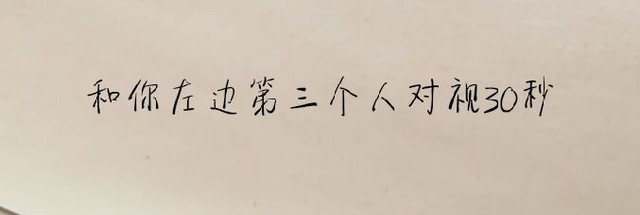 和你左边第三个人对视30秒